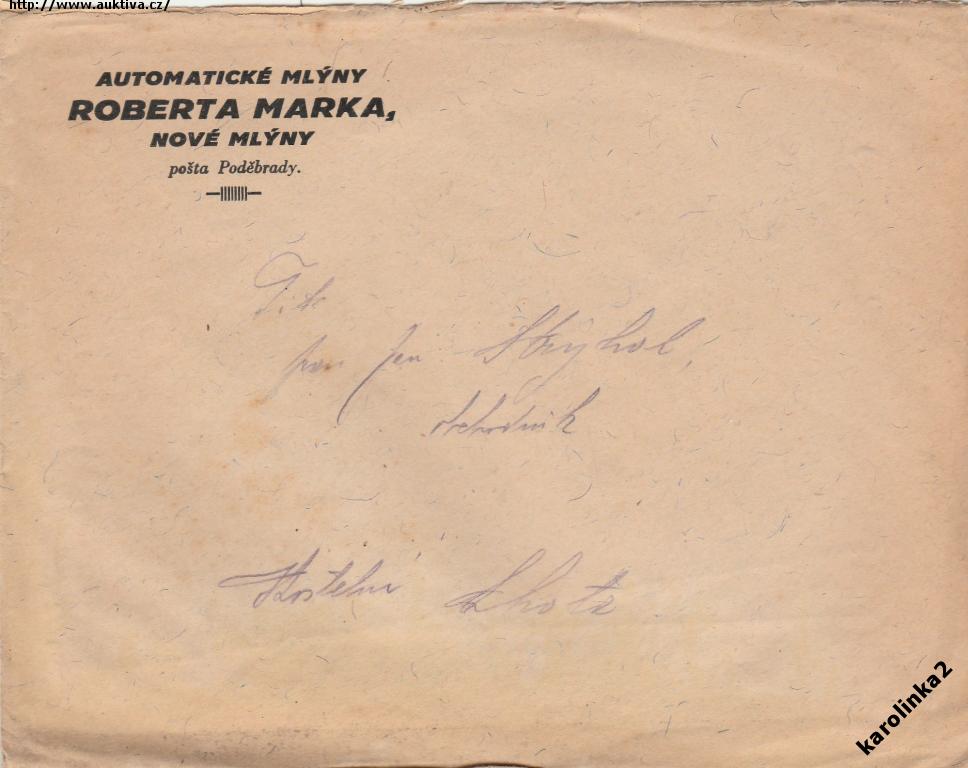 http://www.auktiva.cz/
AUTOMATICKÉ MLÝNY
ROBERTA MARKA,
NOVÉ MLÝNY
pošta Poděbrady.
pan Jan
Kostelní Lhota
karolinka2